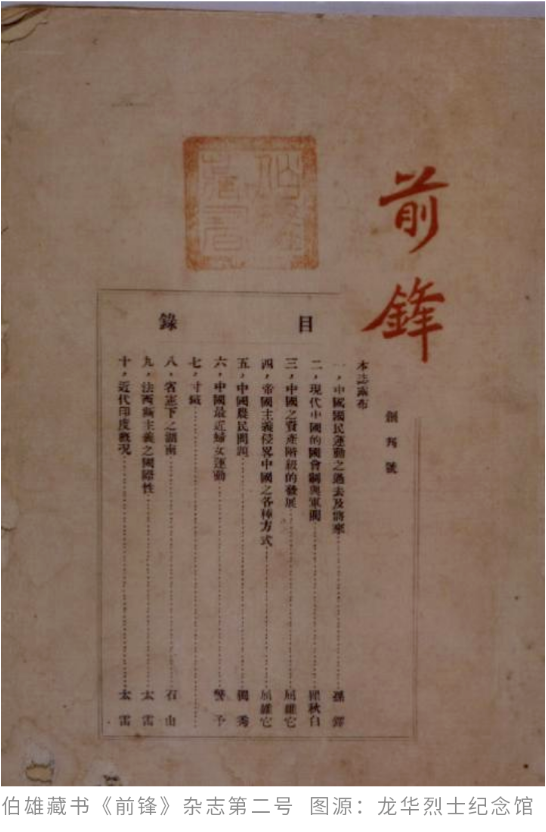 前鋒
創刊號
目錄
本誌露布
一，中國國民運動之過去及將來……孫鐸
二，現代中國的國會制與軍閥……瞿秋白
三，中國之資產階級的發展……屈維它
四，帝國主義侵畧中國之各種方式……屈維它
五，中國農民問題……獨秀
六，中國最近婦女運動……警予
七，寸鐵……
八，省憲下之湖南……石山
九，法西斯主義之國際性……太雷
十，近代印度概況……太雷
伯雄藏书《前锋》杂志第二号 图源：龙华烈士纪念馆